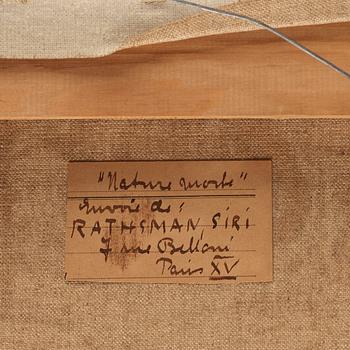 "Nature morte"
Envoie de:
RATHSMAN SIRI
7 rue Belloni
Paris XV